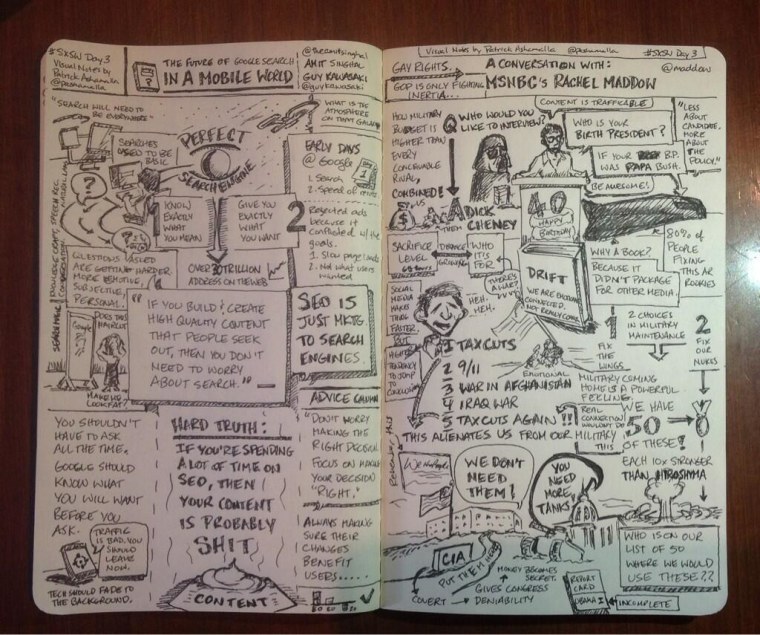 #SXSW Day 3
Visual Notes by
Patrick Ashamalla
@pashamalla
THE FUTURE OF GOOGLE SEARCH
IN A MOBILE WORLD
AMIT SINGHAL
GUY KAWASAKI
@guykawasaki
"SEARCH WILL NEED TO
BE EVERYWHERE"
SEARCHES
USED TO BE
BASIC
PERFECT
SEARCH ENGINE
WHAT IS THE
ATMOSPHERE
ON THAT GALAXY
KNOW
EXACTLY
WHAT
YOU MEAN
GIVE YOU
EXACTLY
WHAT
YOU WANT
EARLY DAYS
@ Google
1. Search
2. Speed of
2
Rejected ads
because it
conflicted w/ the
goals.
1. Slow page loads
2. Not what users
wanted
OVER 30 TRILLION
ADDRESS ON THE WEB
QUESTIONS ASKED
ARE GETTING HARDER
MORE EMOTIVE,
SUBJECTIVE,
PERSONAL.
Google
DOES THIS
HAIRCUT
MAKE ME
LOOK FAT?
"IF YOU BUILD & CREATE
HIGH QUALITY CONTENT
THAT PEOPLE SEEK
OUT, THEN YOU DON'T
NEED TO WORRY
ABOUT SEARCH."
SEO IS
JUST MKTG
TO SEARCH
ENGINES.
ADVICE COLUMN
"DON'T WORRY
MAKING THE
RIGHT DECISION
FOCUS ON MAKING
YOUR DECISION
"RIGHT."
YOU SHOULDN'T
HAVE TO ASK
ALL THE TIME.
GOOGLE SHOULD
KNOW WHAT
YOU WILL WANT
BEFORE YOU
ASK.
HARD TRUTH:
IF YOU'RE SPENDING
A LOT OF TIME ON
SEO, THEN
YOUR CONTENT
IS PROBABLY
SHIT
CONTENT
ALWAYS MAKING
SURE THEIR
CHANGES
BENEFIT
USERS.....
TRAFFIC
IS BAD. YOU
SHOULD
LEAVE
NOW.
TECH SHOULD FADE TO
THE BACKGROUND.
Visual Notes by Patrick Ashamalla @pashamalla #SXSW Day 3
GAY RIGHTS.
GOP IS ONLY FIGHTING
INERTIA...
A CONVERSATION WITH:
MSNBC's RACHEL MADDOW
@maddow
HOW MILITARY
BUDGET IS
HIGHER THAN
EVERY
CONCEIVABLE
RIVAL
COMBINED!
$ US THEM
Q WHO WOULD YOU
LIKE TO INTERVIEW?
A DICK
CHENEY
CONTENT IS TRAFFICABLE
WHO IS YOUR
BIRTH PRESIDENT?
IF YOUR B.P.
WAS PAPA BUSH.
BE AWESOME!
"LESS
ABOUT
CANDIDATE.
MORE
ABOUT
THE
POLICY."
40
HAPPY
BIRTHDAY
80% OF
PEOPLE
FIXING
THIS AR
ROOKIES
SACRIFICE
LEVEL
DISTANCE
GROWING
WHO
IT'S
FOR
SOCIAL
MEDIA
MAKES THIS
FASTER.
BUT
HIGHER
TENDENCY
TO JUMP
TO
CONCLUSION
HEH.
HEH.
THERE'S
A WAR?
DRIFT
WE ARE EMOTIONALLY
CONNECTED
NOT REALLY CONN.
WHY A BOOK?
BECAUSE IT
DIDN'T PACKAGE
FOR OTHER MEDIA.
2 CHOICES
IN MILITARY
MAINTENANCE
1
FIX
THE
WINGS
2
FIX
OUR
NUKES
1 TAX CUTS
2 9/11
3 WAR IN AFGHANISTAN
4 IRAQ WAR
5 TAX CUTS AGAIN!!!
THIS ALIENATES US FROM OUR MILITARY
EMOTIONAL
MILITARY COMING
HOME IS A POWERFUL
FEELING.
REAL
CONNECTION
WOULDN'T DO
THIS
WE HAVE
50
OF THESE!
EACH 10X STRONGER
THAN HIROSHIMA
WE DON'T
NEED
THEM!
YOU
NEED
MORE
TANKS
CIA
PUT THEM IN
COVERT
MONEY BECOMES
SECRET.
GIVES CONGRESS
DENIABILITY
REPORT
CARD
OBAMA I
INCOMPLETE
WHO IS ON OUR
LIST OF 50
WHERE WE WOULD
USE THESE??